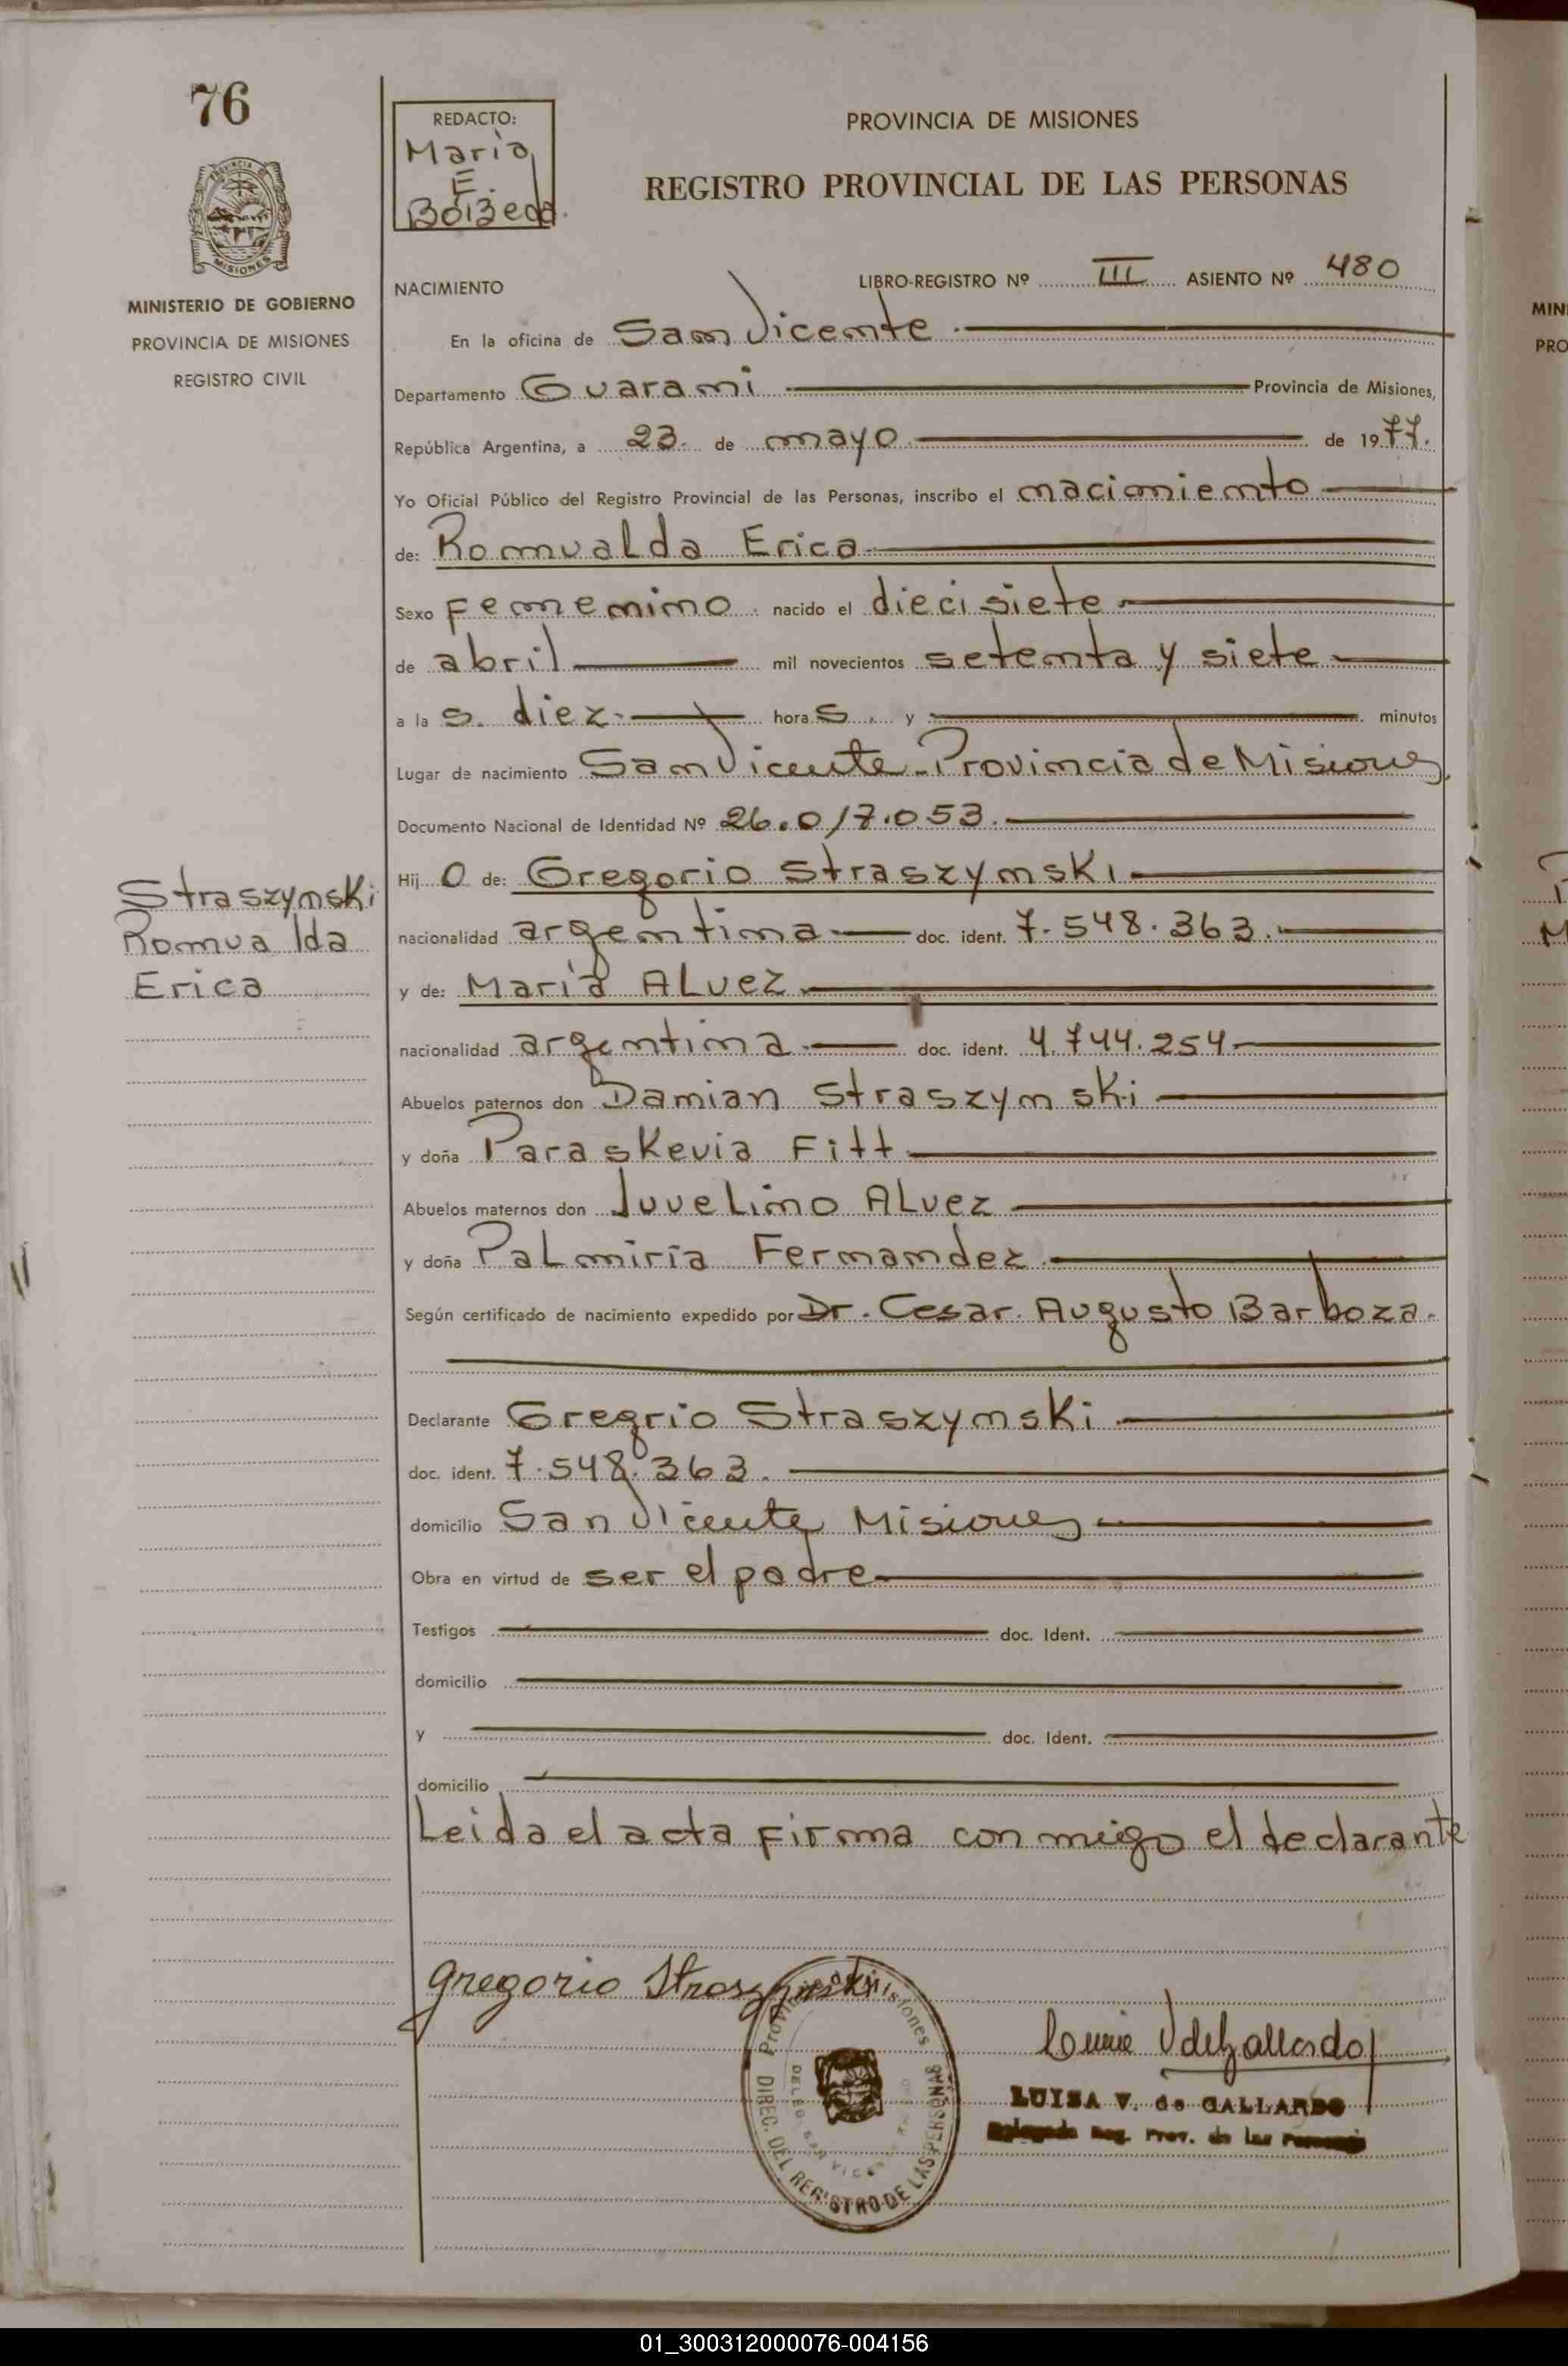 76
REDACTO:
Maria
E.
Boizeda.
PROVINCIA DE MISIONES
REGISTRO PROVINCIAL DE LAS PERSONAS
MISIONES
MINISTERIO DE GOBIERNO
PROVINCIA DE MISIONES
REGISTRO CIVIL
NACIMIENTO LIBRO-REGISTRO Nº III ASIENTO Nº 480
En la oficina de San Vicente
Departamento Guarani Provincia de Misiones,
República Argentina, a 23. de mayo de 1977.
Yo Oficial Público del Registro Provincial de las Personas, inscribo el nacimiento
de: Romualda Erica
Sexo Femenino nacido el dieci siete
de abril mil novecientos setenta y siete
a las. diez horas, y minutos
Lugar de nacimiento San Vicente - Provincia de Misiones
Documento Nacional de Identidad Nº 26.017.053.
Straszynski
Romualda
Erica
Hijo de: Gregorio Straszynski
nacionalidad argentina doc. ident. 7.548.363.
y de: Maria Alvez
nacionalidad argentina doc. ident. 4.744.254
Abuelos paternos don Damian Straszynski
y doña Paraskevia Fitt
Abuelos maternos don Juvelino Alvez
y doña Palmiria Fernandez
Según certificado de nacimiento expedido por Dr. Cesar. Augusto Barboza.
Declarante Gregrio Straszynski
doc. ident. 7.548.363.
domicilio San Vicente Misiones
Obra en virtud de ser el padre
Testigos doc. Ident.
domicilio
y doc. Ident.
domicilio
Leida el acta firma con migo el declarante
Gregorio Straszynski
Provincia de Misiones
DIREC. DEL REGISTRO DE LAS PERSONAS
LUISA V. de GALLARDO
Delegada Reg. Prov. de las Personas
01_300312000076-004156